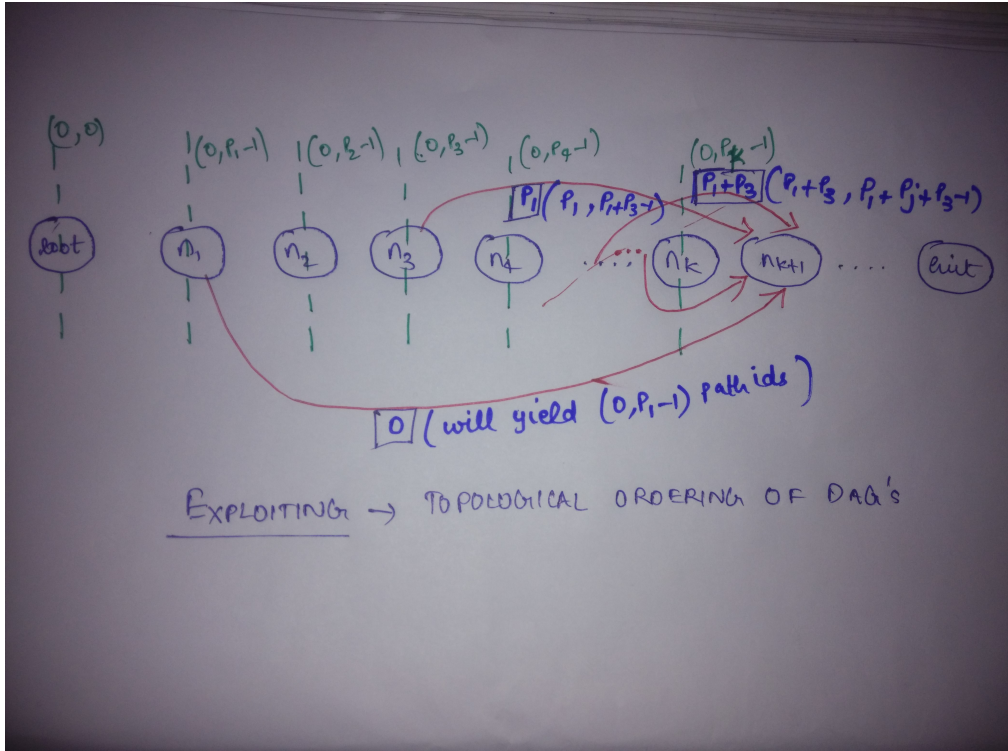 (0,0)
(0,P₁-1) (0,P₂-1) (0,P₃-1) (0,P₄-1) (0,Pₖ-1)
P₁ (P₁, P₁+P₃-1) P₁+P₃ (P₁+P₃, P₁+Pj+P₃-1)
n₁ n₂ n₃ n₄ ..... nₖ nₖ₊₁ ....
0 (will yield (0,P₁-1) Path ids)
EXPLOITING → TOPOLOGICAL ORDERING OF DAG's